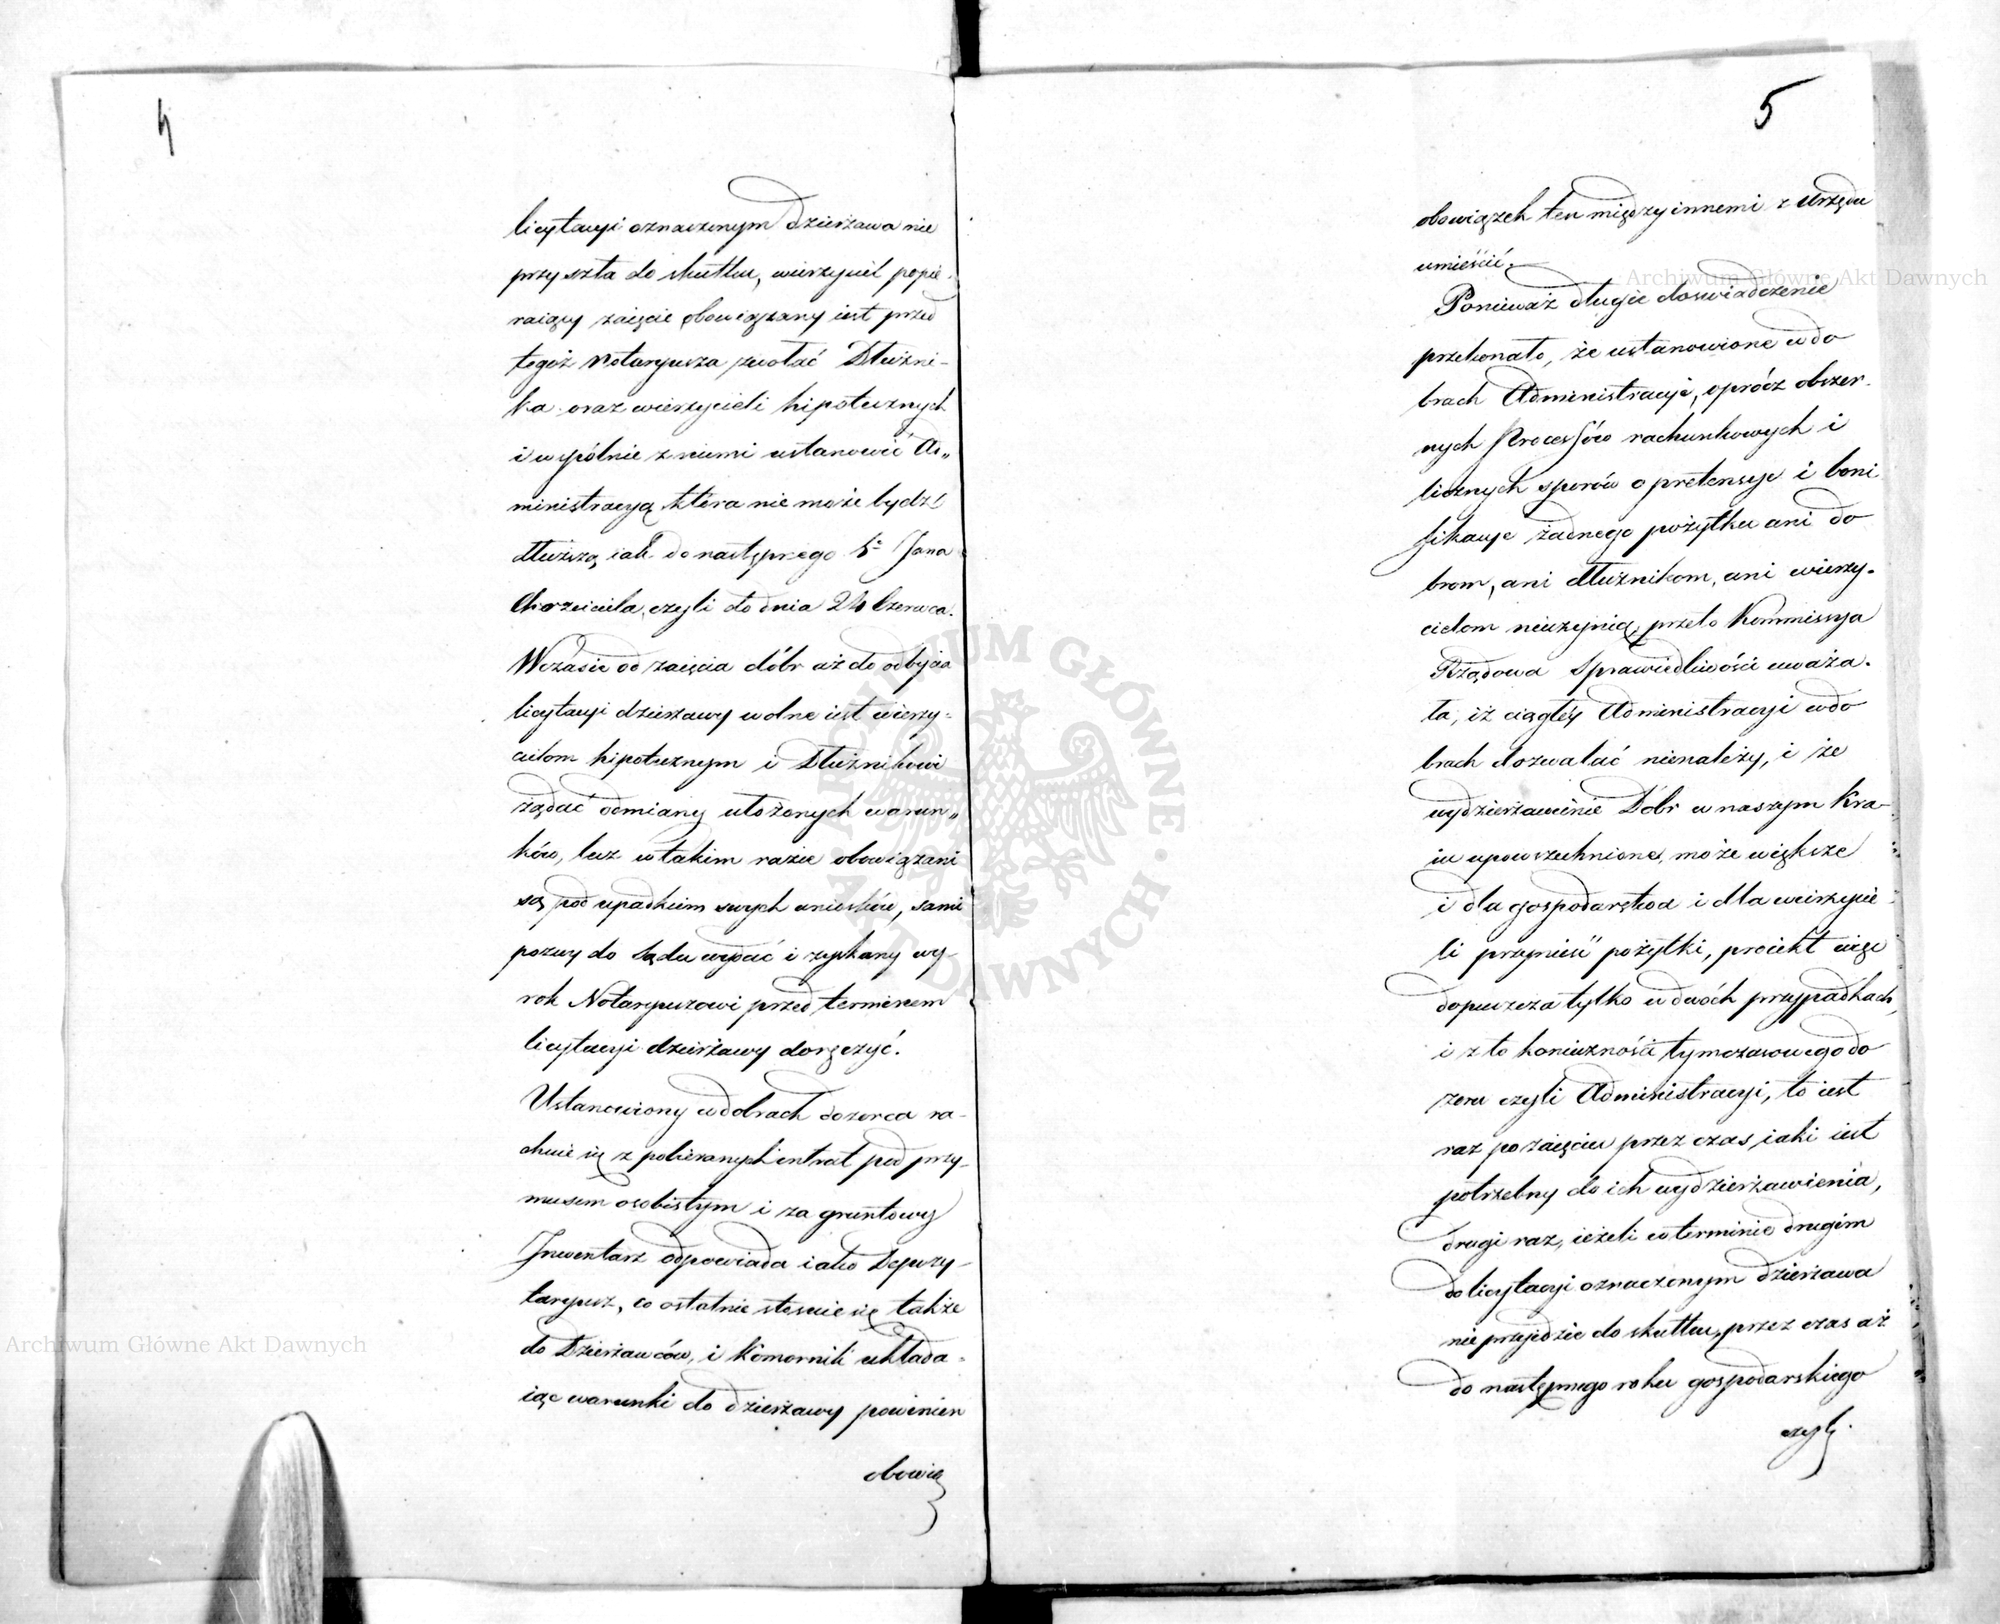 4
licytacyi oznaczonym dzierżawa nie
przyszła do skutku, wierzyciel popie-
raiący zaięcie obowiązany iest przed
tegóż Notaryusza zwołać Dłużni-
ka oraz wierzycieli hipotecznych
i wspólnie z niemi ustanowić Ad„
ministracyą która nie może bydź
dłuższą iak do następnego Sgo Jana
Chrzciciela, czyli do dnia 24 Czerwca.
W czasie od zaięcia dóbr aż do odbycia
licytacyi dzierżawy wolne iest wierzy-
cielom hipotecznym i Dłużnikowi
żądać odmiany ułożonych warun„
ków, lecz w takim razie obowiązani
są pod upadkiem swych wniosków, sami
pozwy do Sądu wydać i zyskany wy-
rok Notaryuszowi przed terminem
licytacyi dzierżawy doręczyć.
Ustanowiony w dobrach dozorca ra-
chuie się z pobieranych intrat pod przy-
musem osobistym i za gruntowy
Inwentarz odpowiada iako Depozy-
taryusz, co ostatnie stosuie się także
do Dzierżawców, i Komornik układa-
iąc warunki do dzierżawy powinien
obowią
5
obowiązek ten między innemi z Urzędu
umieścić.
Ponieważ długie doswiadczenie
przekonało, że ustanowione w do
brach Administracyje, oprócz obszer-
nych Processów rachunkowych i
licznych sporów o pretensye i boni
fikacye żadnego pożytku ani do
brom, ani dłużnikom, ani wierzy-
cielom nieczynią, przeto Kommissya
Rządowa Sprawiedliwości uważa-
ła, iż ciągłéy Administracyi w do
brach dozwalać nienależy, i że
wydzierżawienie Dóbr w naszym Kra-
iu upowszechnione, może większe
i dla gospodarstwa i dla wierzycie
li przynieść pożytki, proiekt więc
dopuszcza tylko w dwóch przypadkach,
i z to konieczności tymczasowego do
zoru czyli Administracyi, to iest
raz po zaięciu przez czas iaki iest
potrzebny do ich wydzierżawienia,
drugi raz, ieżeli w terminie drugim
do licytacyi oznaczonym dzierżawa
nie przyjdzie do skutku, przez czas aż
do następnego roku gospodarskiego
czyli
Archiwum Główne Akt Dawnych
Archiwum Główne Akt Dawnych
ARCHIWUM GŁÓWNE AKT DAWNYCH